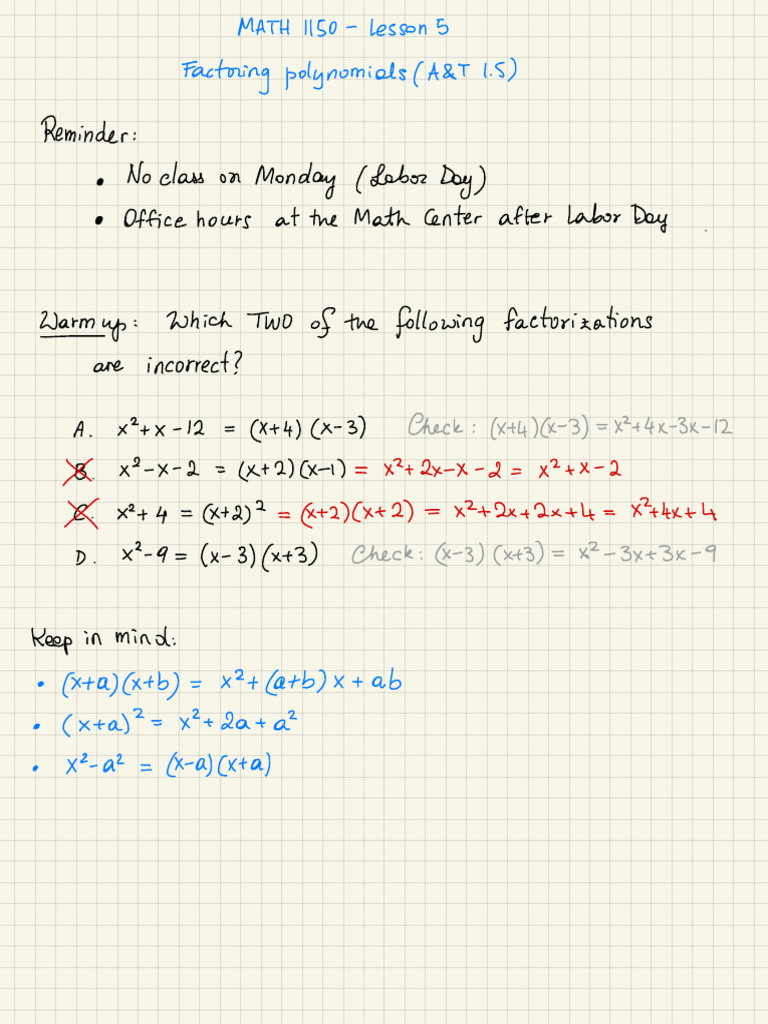 MATH 1150 – Lesson 5
Factoring polynomials (A&T 1.5)
Reminder:
• No class on Monday (Labor Day)
• Office hours at the Math Center after Labor Day
Warm up: Which TWO of the following factorizations
are incorrect?
A. x²+x-12 = (x+4)(x-3) Check: (x+4)(x-3) = x²+4x-3x-12
B. x²-x-2 = (x+2)(x-1) = x²+2x-x-2 = x²+x-2
C. x²+4 = (x+2)² = (x+2)(x+2) = x²+2x+2x+4 = x²+4x+4
D. x²-9 = (x-3)(x+3) Check: (x-3)(x+3) = x²-3x+3x-9
Keep in mind:
• (x+a)(x+b) = x²+(a+b)x+ab
• (x+a)² = x²+2a+a²
• x²-a² = (x-a)(x+a)